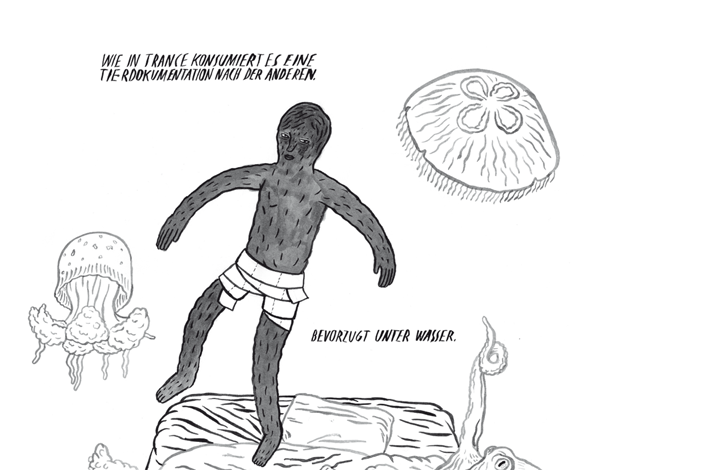 WIE IN TRANCE KONSUMIERT ES EINE
TIERDOKUMENTATION NACH DER ANDEREN.
BEVORZUGT UNTER WASSER.